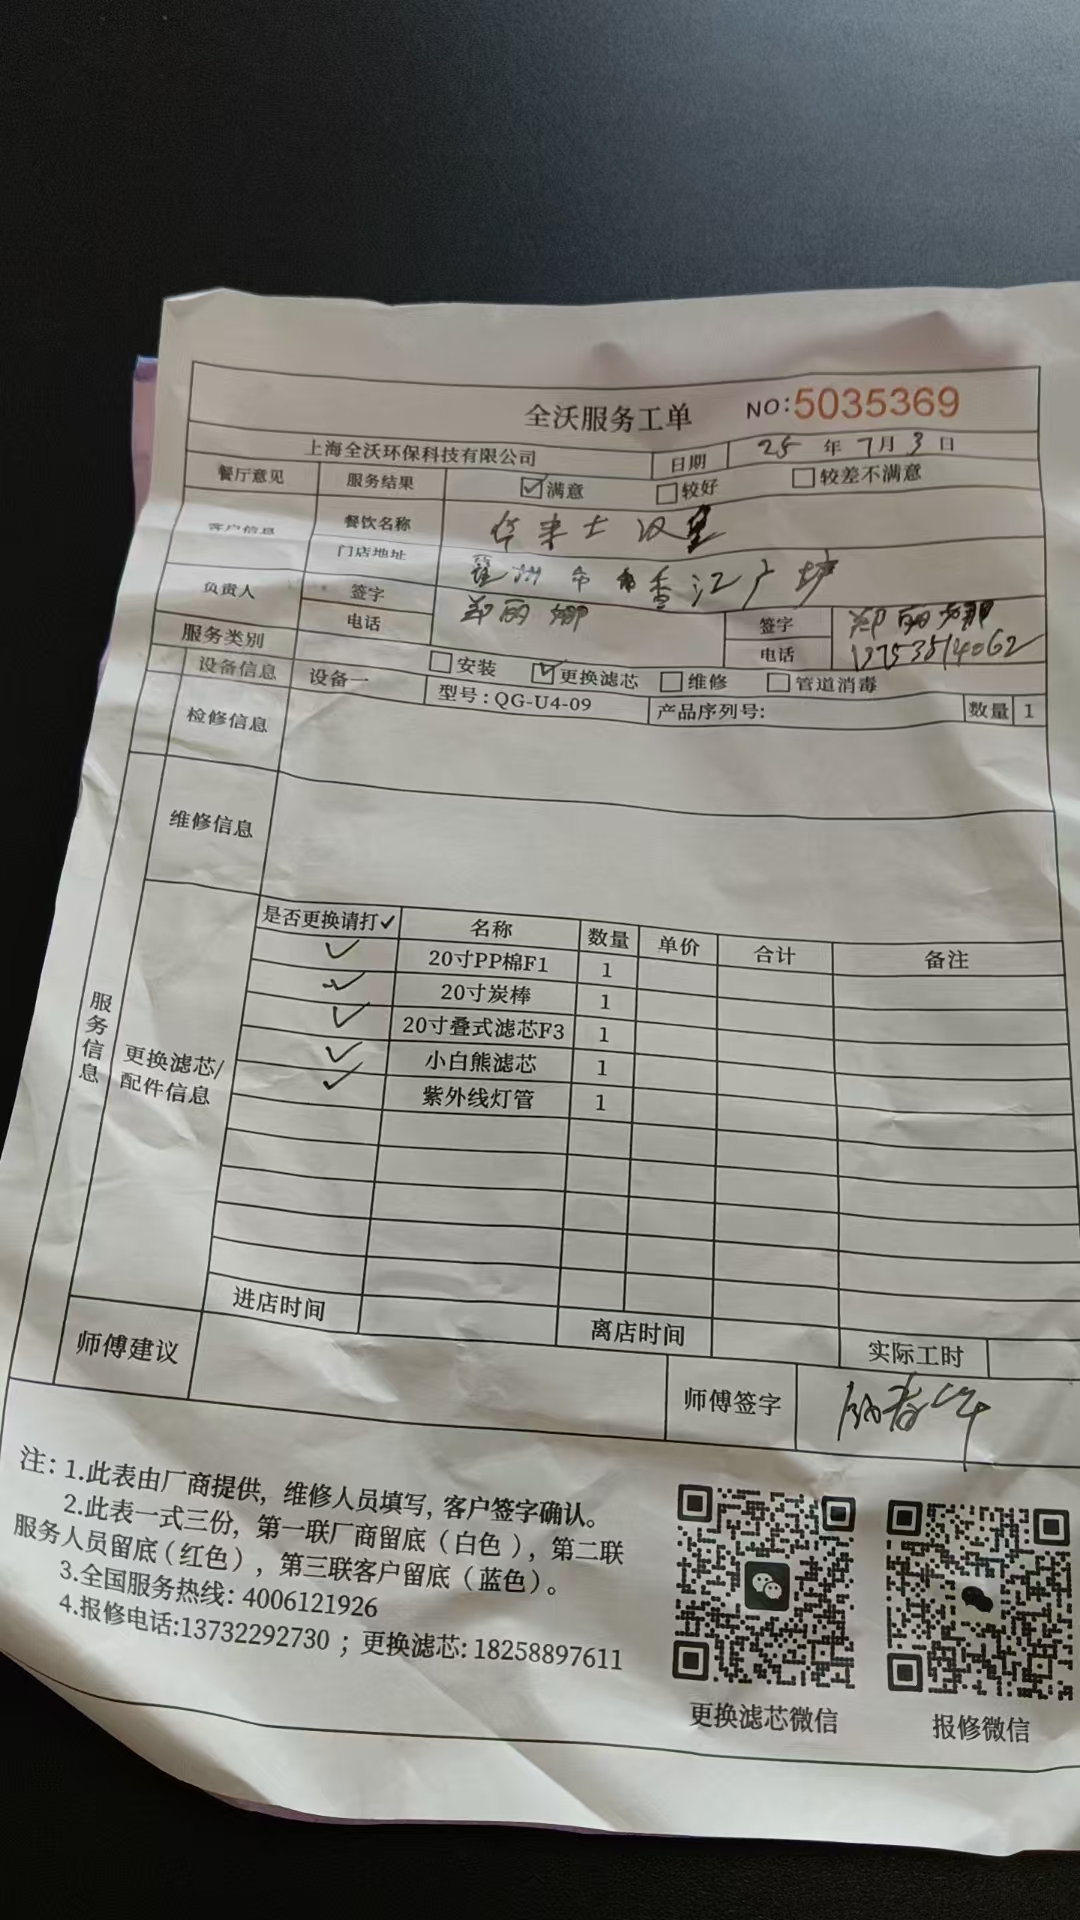 全沃服务工单 NO:5035369
上海全沃环保科技有限公司 日期 25 年 7 月 3 日
餐厅意见 服务结果 ☑满意 □较好 □较差不满意
客户信息 餐饮名称 华来士汉堡
门店地址 州市 香江广场
负责人 签字 郑丽娜 签字 郑丽娜
电话 电话
服务类别 □安装 ☑更换滤芯 □维修 □管道消毒
设备信息 设备一 型号:QG-U4-09 产品序列号: 数量 1
检修信息
维修信息
服务信息
更换滤芯/配件信息
是否更换请打✓ 名称 数量 单价 合计 备注
✓ 20寸PP棉F1 1
✓ 20寸炭棒 1
✓ 20寸叠式滤芯F3 1
✓ 小白熊滤芯 1
✓ 紫外线灯管 1
进店时间 离店时间 实际工时
师傅建议 师傅签字
注: 1.此表由厂商提供, 维修人员填写, 客户签字确认。
2.此表一式三份, 第一联厂商留底(白色), 第二联
服务人员留底(红色), 第三联客户留底(蓝色)。
3.全国服务热线: 4006121926
4.报修电话:13732292730 ; 更换滤芯: 18258897611
更换滤芯微信 报修微信